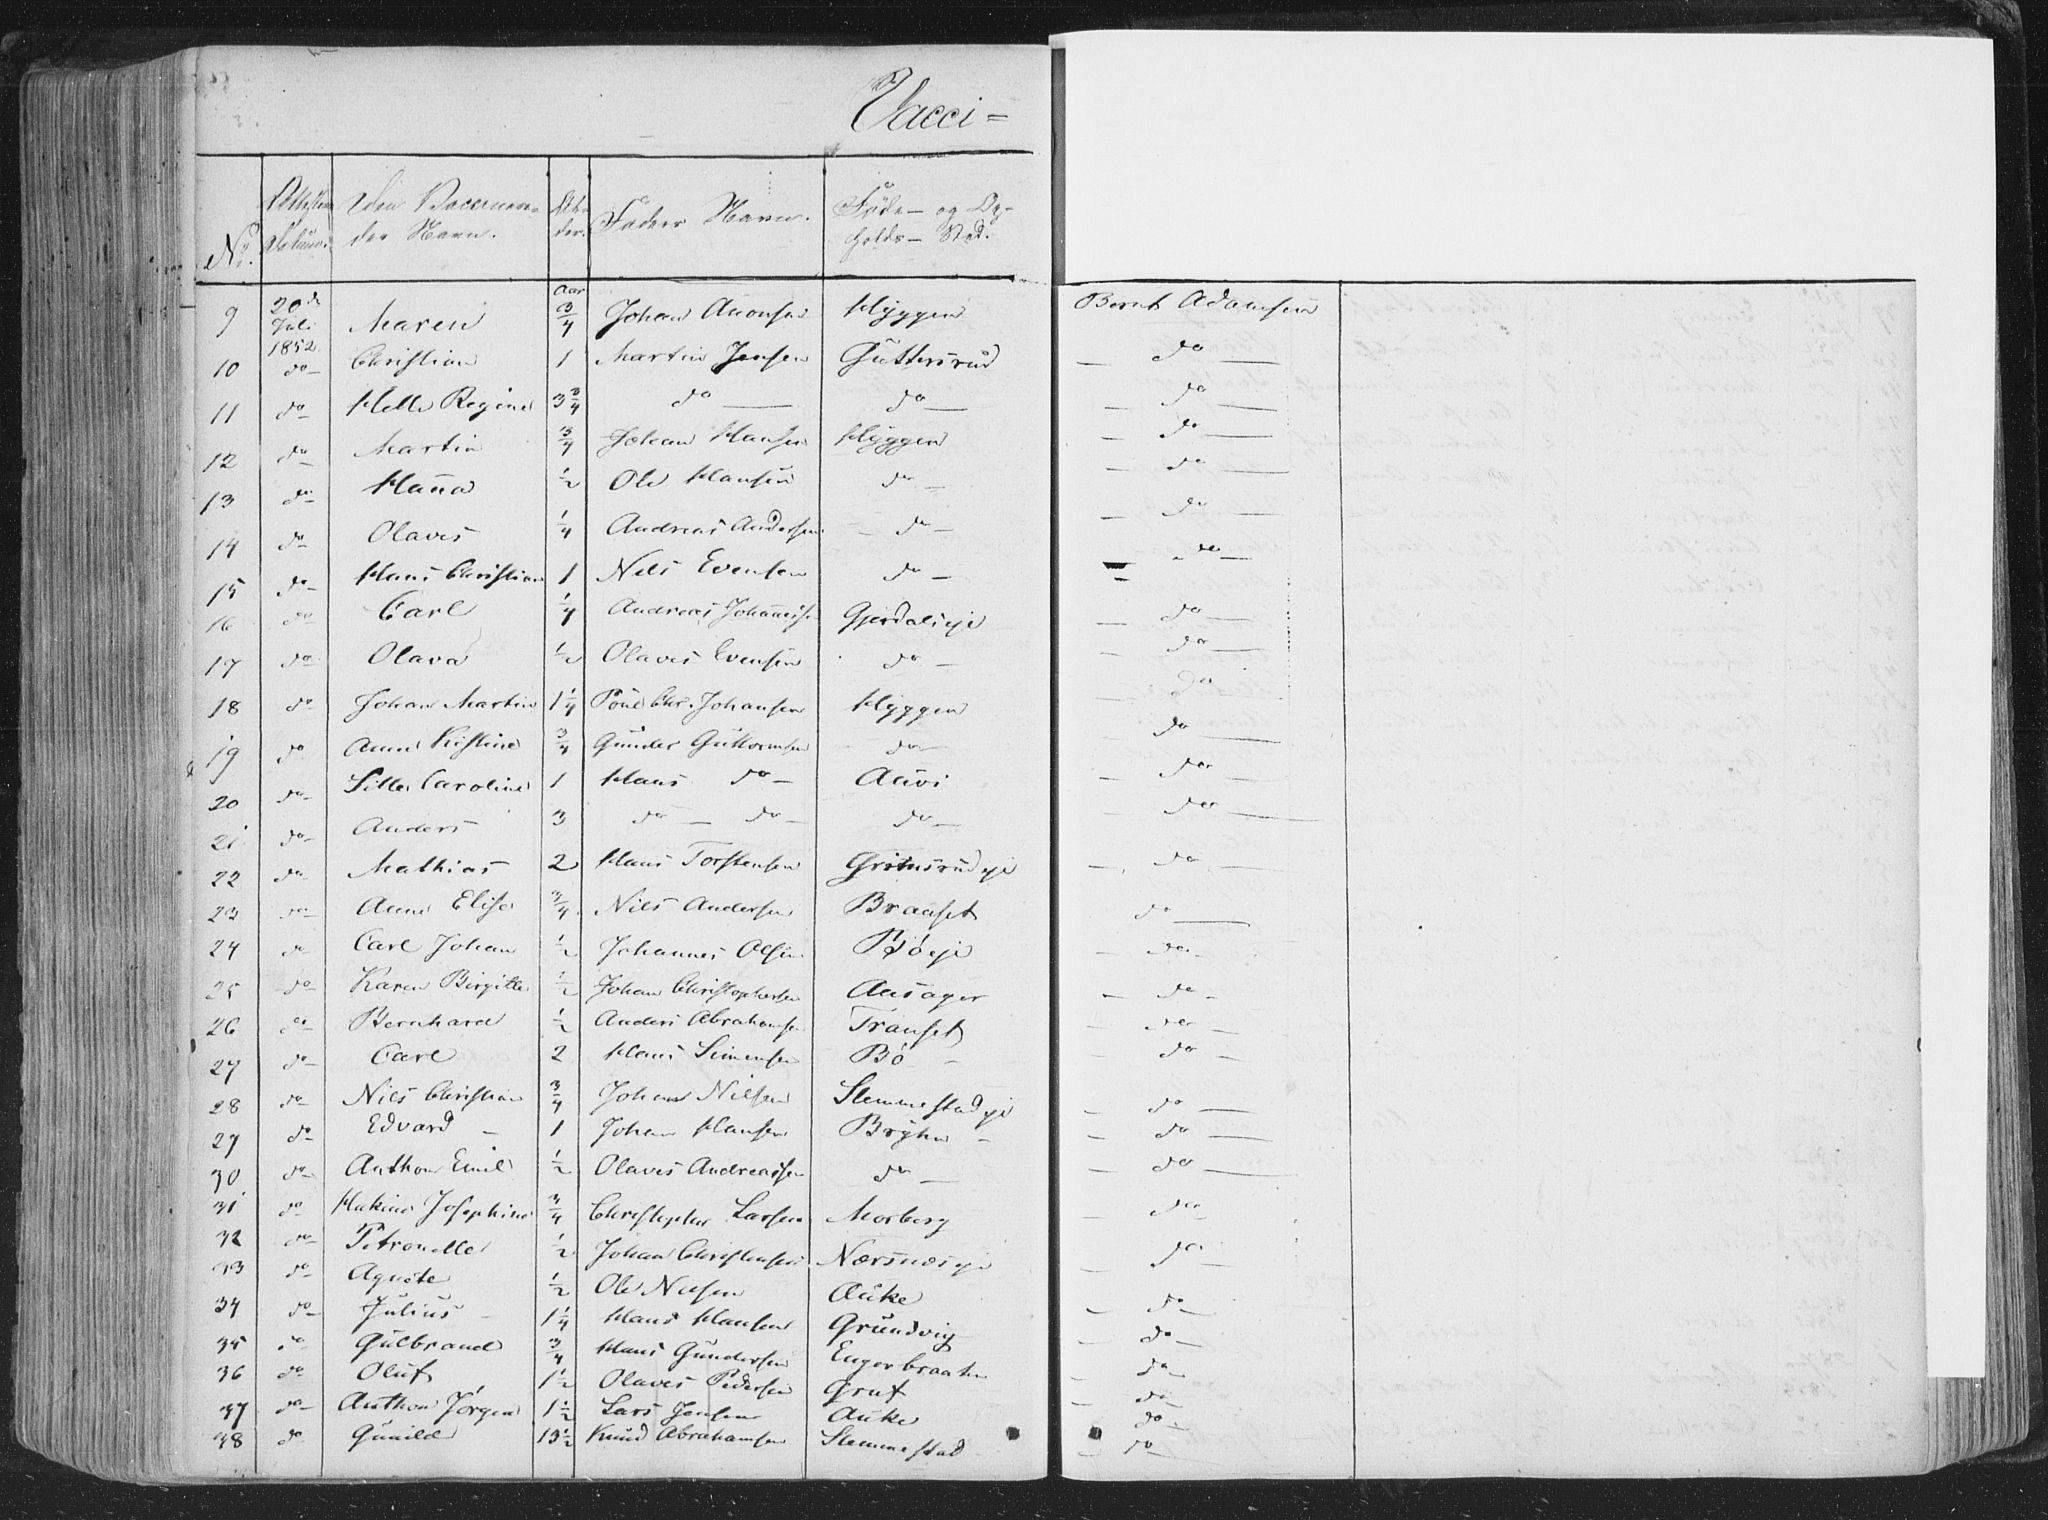 Vacci=
No. Attestens Datum. Den Vaccinerendes Navn. Alder. Faders Navn. Føde- og Opholds-Sted.
Aar
9 20de Juli 1852 Maren 3/4 Johan Amonsen Hyggen Bernt Adamsen
10 do Christian 1 Martin Jensen Guttersrud — do —
11 do Helle Regine 3 3/4 do — do — — do —
12 do Martin 3/4 Johan Hansen Hyggen — do —
13 do Hanna 1/2 Ole Hansen do — — do —
14 do Olaves 1/4 Andreas Andersen do — — do —
15 do Hans Christian 1 Nils Evensen do — do —
16 do Carl 1/4 Andreas Johannesen Gjerdaleje — do —
17 do Olava 1/2 Olaves Evensen do — — do —
18 do Johan Martin 1 1/4 Poul Chr. Johansen Hyggen — do
19 do Anne Kistine 3/4 Gunder Guttormsen do — do —
20 do Sille Caroline 1 Hans do — Auvi — do —
21 do Anders 3 do — do — do — — do —
22 do Mathias 2 Hans Torstensen Grimsrudeje — do —
23 do Anne Elise 3/4 Nils Andersen Braaset do —
24 do Carl Johan 1/2 Johannes Olsen Bøeje — do —
25 do Karen Birgitte 1/2 Johan Christophersen Aasager — do —
26 do Bernhard 1/2 Anders Abrahamsen Transet — do —
27 do Carl 2 Hans Simensen Bø — — do —
28 do Nils Christian 3/4 Johan Nilsen Slemmestadeje — do —
29 do Edvard — 1 Johan Hansen Bryhn — — do —
30 do Anthon Emil 1/2 Olaves Andreassen do — — do —
31 do Hakine Josephine 3/4 Christopher Larsen Morberg — do —
32 do Petronelle 1/2 Johan Christensen Nærsnæseje — do —
33 do Agnete 1/2 Ole Nilsen Auke
34 do Julius — 1 1/4 Hans Hansen Grundvig — do —
35 do Gulbrand 3/4 Hans Gundersen Engerbraaten — do —
36 do Oluf 1 1/2 Olaves Pedersen Gruf — do —
37 do Anthon Jörgen 1 1/2 Lars Jensen Auke — do —
38 do Gunild 13 1/2 Knud Abrahamsen Slemmestad — do —